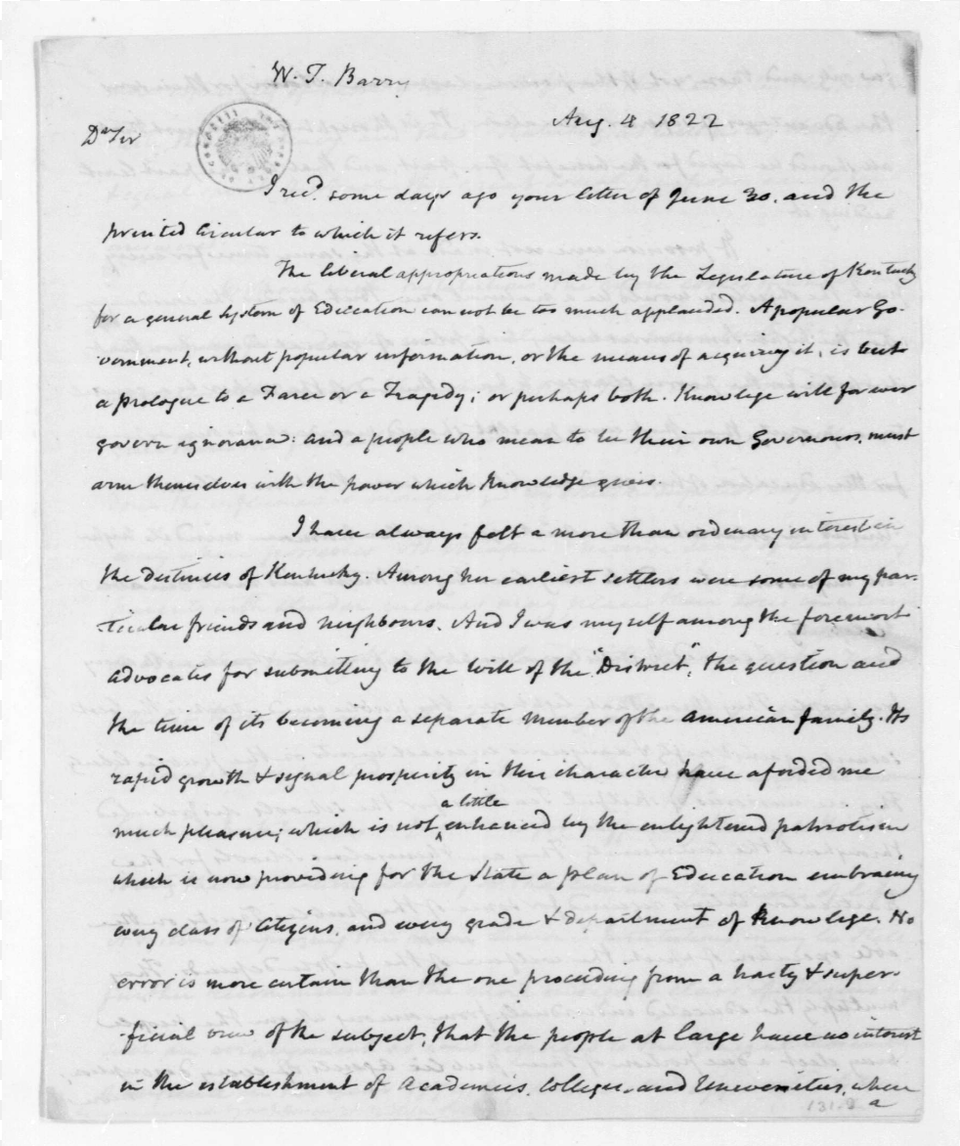 W. T. Barry
Aug. 4 1822
Dr Sir
I recd. some days ago your letter of June 30. and the
printed Circular to which it refers.
The liberal appropriations made by the Legislature of Kentucky
for a general System of Education can not be too much applauded. A popular Go-
vernment, without popular information, or the means of acquiring it, is but
a Prologue to a Farce or a Tragedy; or perhaps both. Knowlege will for ever
govern ignorance: and a people who mean to be their own Governours, must
arm themselves with the power which Knowledge gives.
I have always felt a more than ordinary interest in
the destinies of Kentucky. Among her earliest settlers were some of my par-
ticular friends and neighbours. And I was myself among the foremost
advocates for submitting to the Will of the "District", the question and
the time of its becoming a separate member of the American family. Its
rapid growth & signal prosperity in this character have aforded me
a little
much pleasure; which is not enhanced by the enlightened patriotism
which is now providing for the State a plan of Education embracing
every class of Citizens, and every grade & department of Knowlege. No
error is more certain than the one proceeding from a hasty & super-
ficial view of the subject, that the people at large have no interest
in the establishment of Academies, Colleges, and Universities, where
a